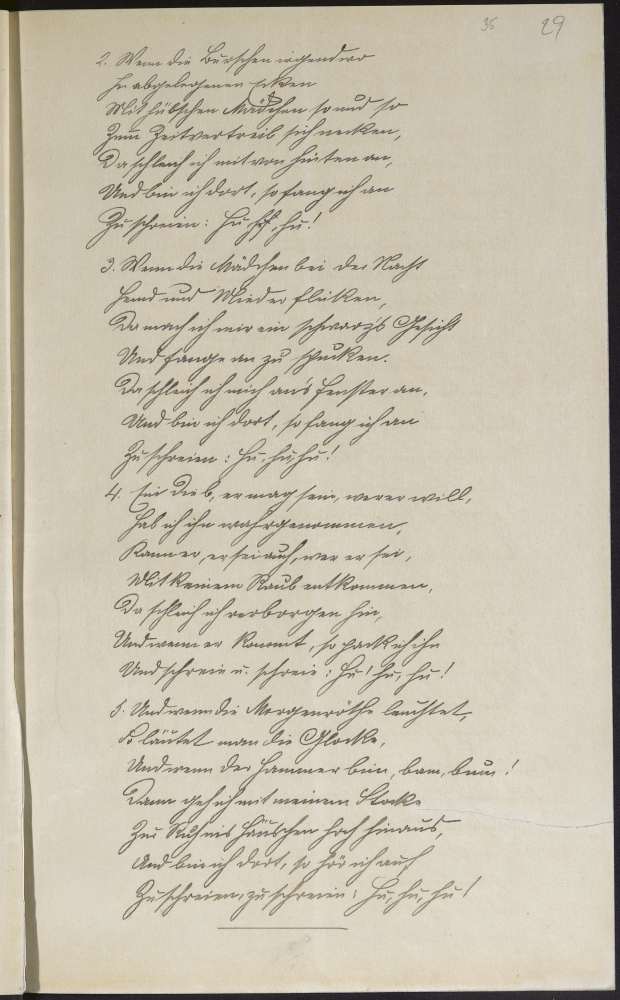 35 29
2. Wenn die Burschen irgendwo
In abgelegenen Ecken
Mit hübschen Mädchen so und so
Zum Zeitvertreib sich necken,
Da schleich ich mit von hinten an,
Und bin ich dort, so fang ich an
Zu schreien: Hu hu, hu!
3. Wenn die Mädchen bei der Nacht
Hemd und Mieder flicken,
Da mach ich mir ein schwarz's Gesicht
Und fange an zu spucken.
Da schleich ich mich an's Fenster an,
Und bin ich dort, so fang ich an
Zu schreien: Hu, hu, hu!
4. Ein Dieb, er mag sein, wer er will,
Hab ich ihn wahrgenommen,
Kann er, er sei auch, wer er sei,
Mit keinem Raub entkommen,
Da schleich ich verborgen hin,
Und wenn er kommt, so pack ich ihn
Und schreie u. schreie: Hu! hu, hu!
5. Und wenn die Morgenröthe leuchtet,
So läutet man die Glocke,
Und wenn der Hammer bim, bam, bum!
Dann geh ich mit meinem Stocke
Zur Ruh ins Häuschen hoch hinaus,
Und bin ich dort, so hör ich auf
Zu schreien, zu schreien: Hu, hu, hu!